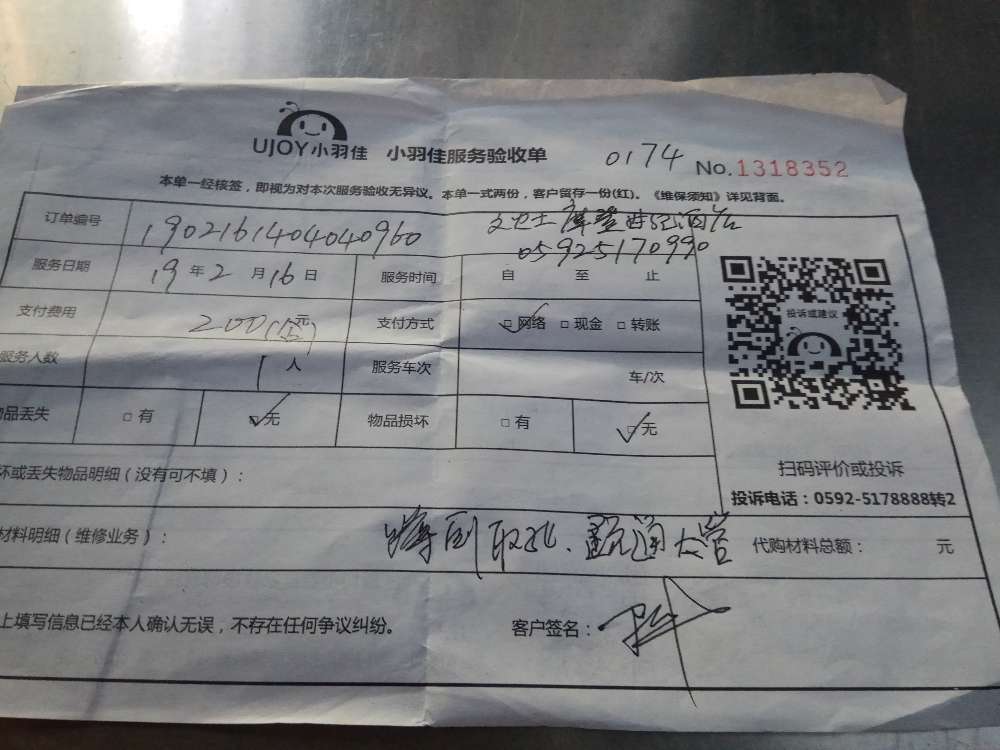 UJOY小羽佳 小羽佳服务验收单 0174 No.1318352
本单一经核签，即视为对本次服务验收无异议。本单一式两份，客户留存一份(红)。《维保须知》详见背面。
订单编号 1902161404040960
05925170990
服务日期 19年2月16日 服务时间 自 至 止
支付费用 200 元 支付方式 ☑网络 □现金 □转账
投诉或建议
服务人数 1人 服务车次 车/次
物品丢失 □有 ☑无 物品损坏 □有 ☑无
坏或丢失物品明细（没有可不填）：
扫码评价或投诉
投诉电话：0592-5178888转2
材料明细（维修业务）： 通大管 代购材料总额： 元
上填写信息已经本人确认无误，不存在任何争议纠纷。 客户签名：